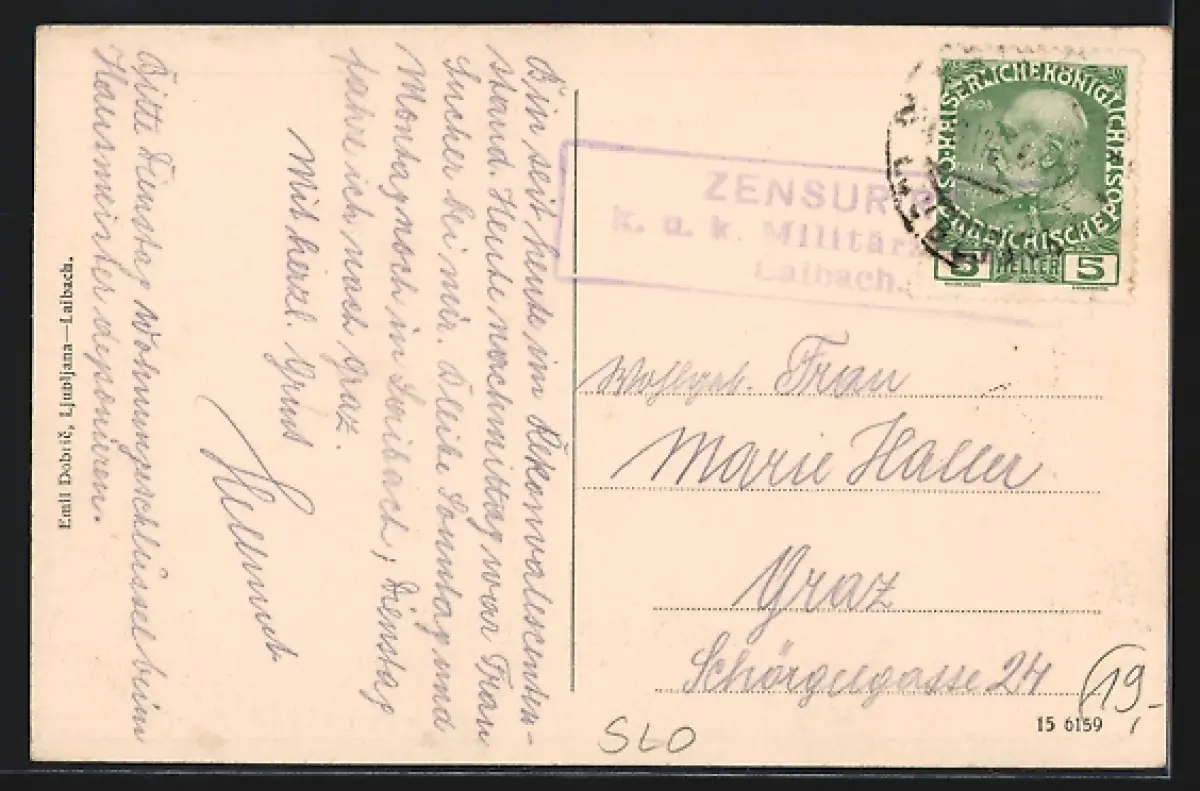 Bin seit heute im Rekonvaleszenten-
stand. Heute nachmittag war Frau
Sucher bei mir. Bleibe Sonntag und
Montag noch in Laibach, Dienstag
fahre ich nach Graz.
Mit herzl. Gruß
Helmut
Bitte Dienstag Wohnungsschlüssel beim
Hausmeister deponieren.
Emil Dobrič, Ljubljana—Laibach.
KAISERLICHE KÖNIGLICHE
ÖSTERREICHISCHE POST
1908
5 HELLER 5
ZENSUR
k. u. k. Militärz
Laibach.
Wohlgeb. Frau
Marie Haller
Graz
Schörgelgasse 24
15 6159
SLO
19,-